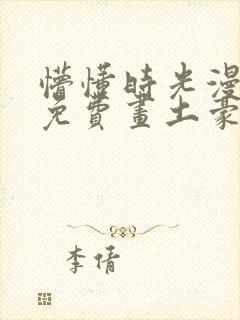 懵懂時光漫
免費畫土豪
李倩